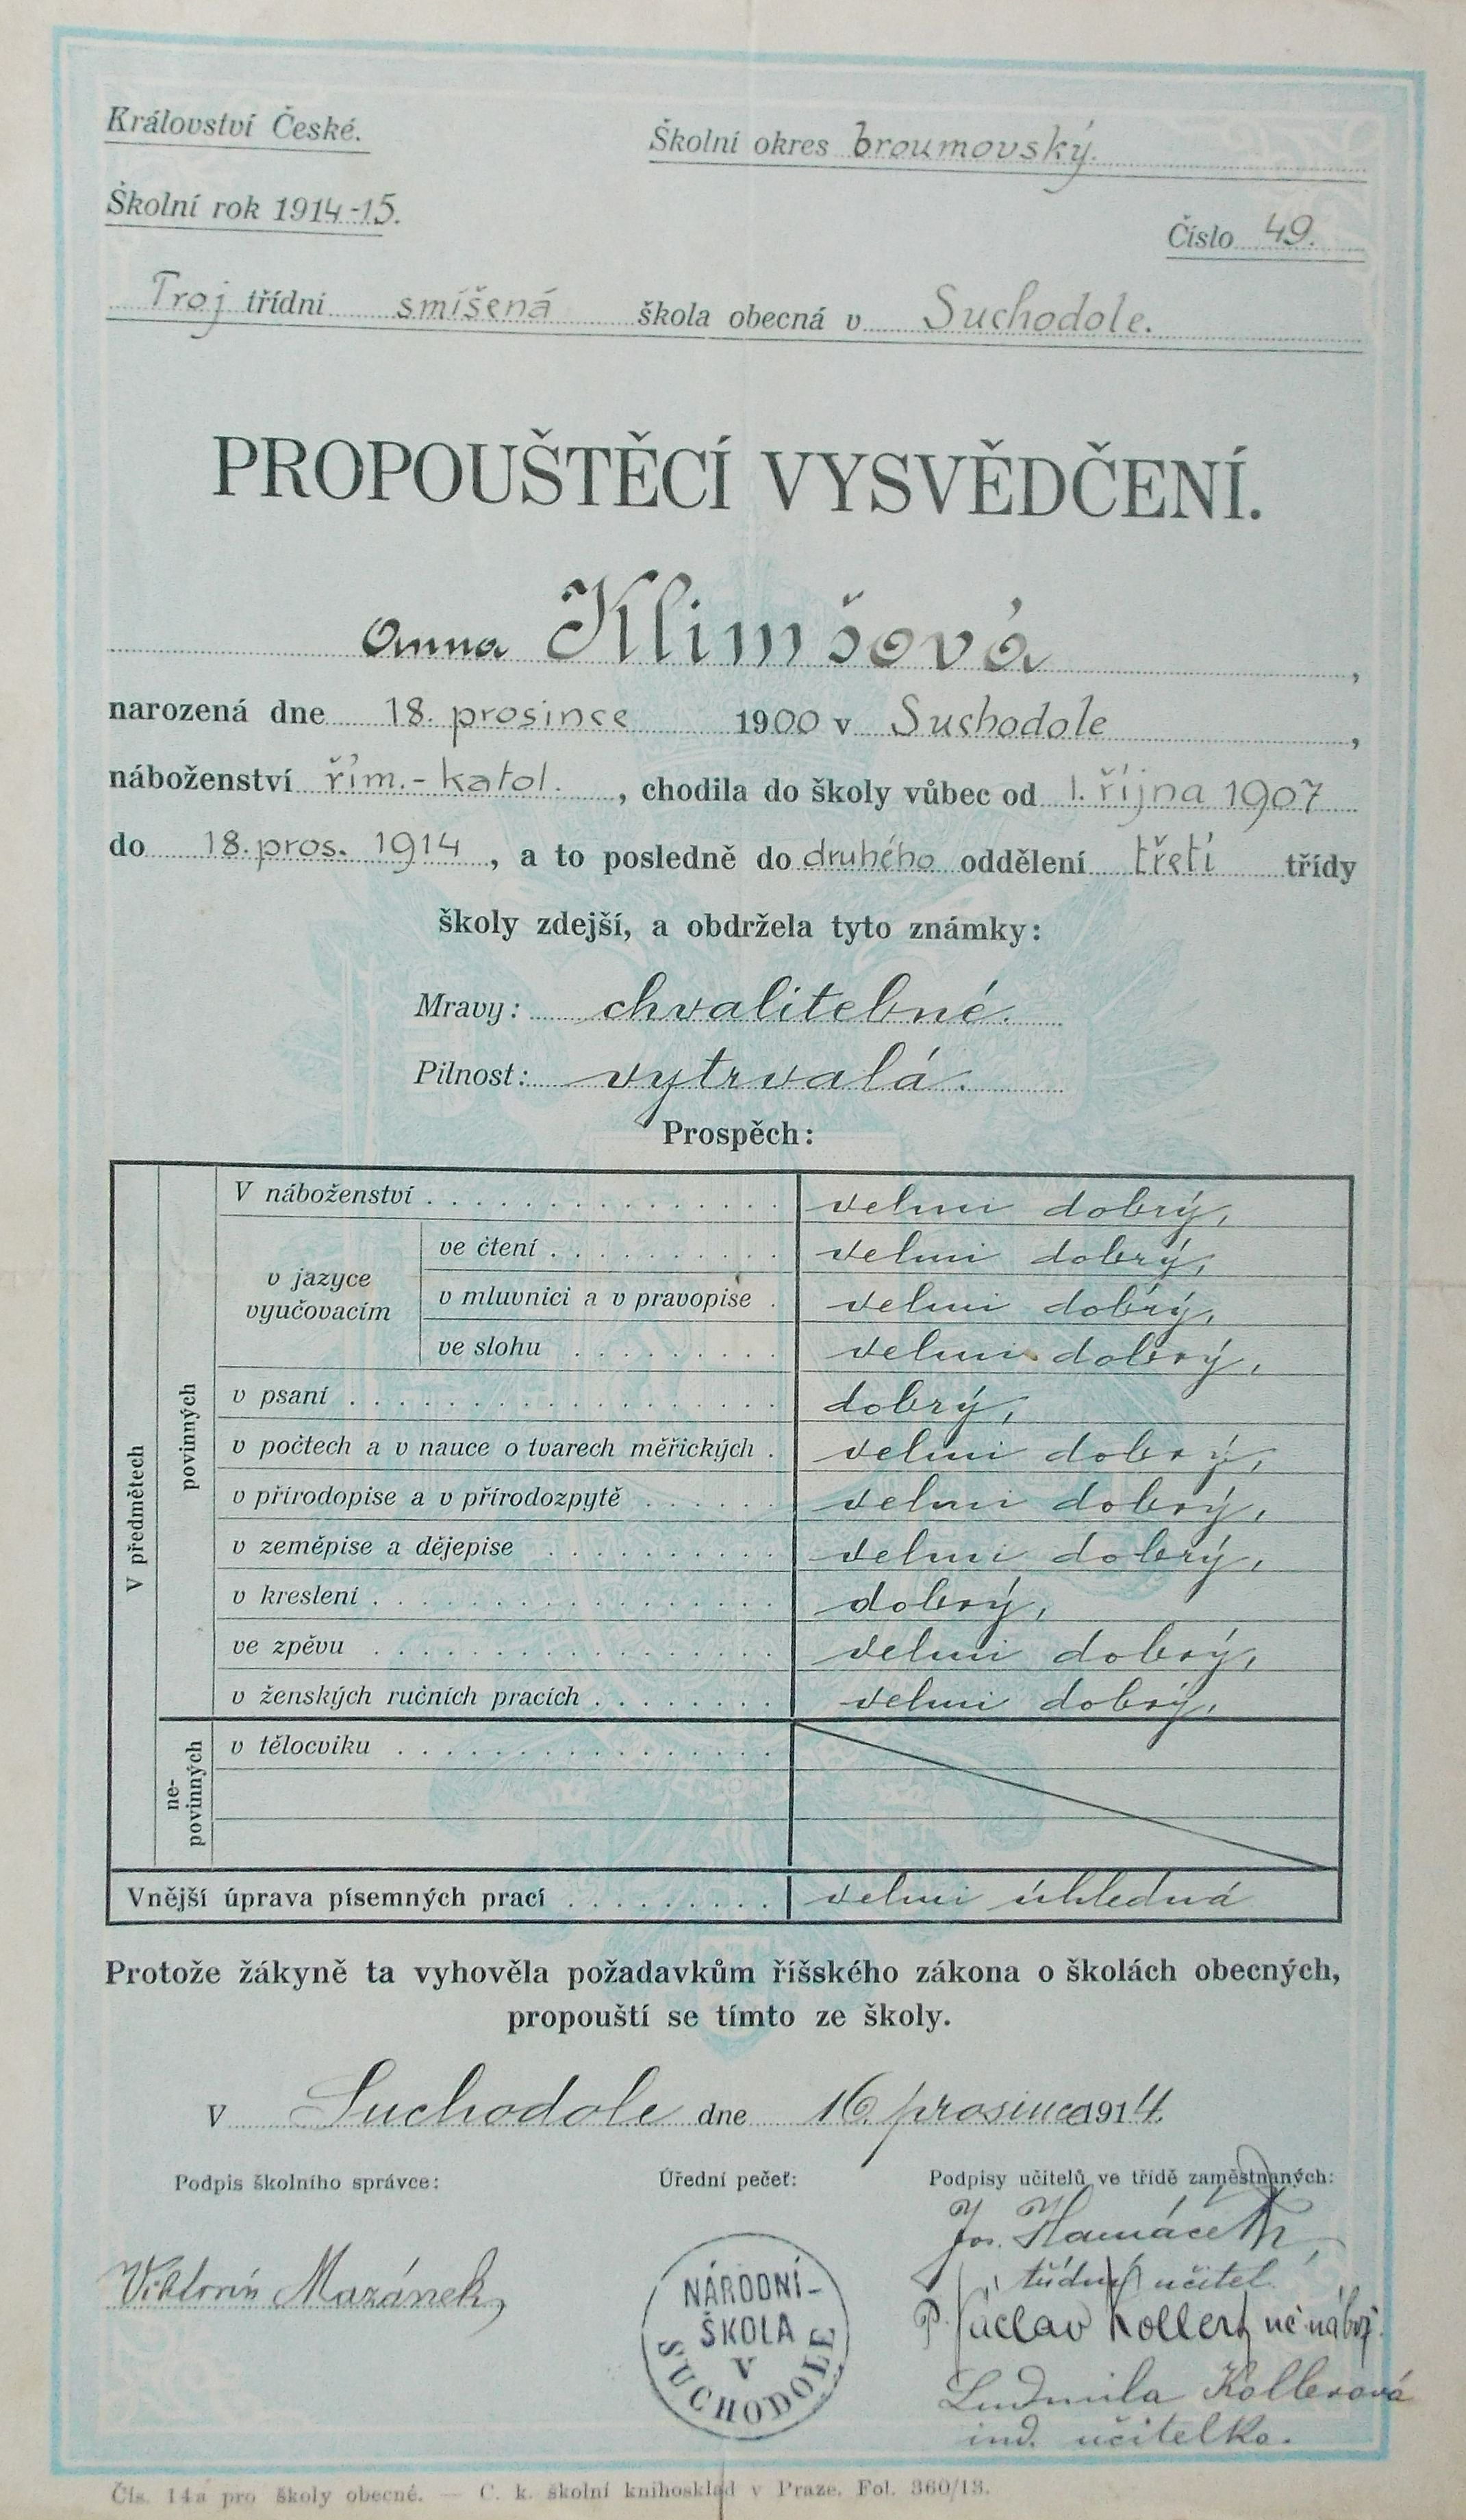 Království České.
Školní okres broumovský.
Školní rok 1914-15.
Číslo 49.
Troj třídní smíšená škola obecná v Suchodole.
PROPOUŠTĚCÍ VYSVĚDČENÍ.
Anna Klimšová,
narozená dne 18. prosince 1900 v Suchodole,
náboženství řím.-katol., chodila do školy vůbec od 1. října 1907
do 18. pros. 1914, a to posledně do druhého oddělení třetí třídy
školy zdejší, a obdržela tyto známky:
Mravy: chvalitebné.
Pilnost: vytrvalá.
Prospěch:
V předmětech
povinných
V náboženství velmi dobrý,
v jazyce vyučovacím
ve čtení velmi dobrý,
v mluvnici a v pravopise velmi dobrý,
ve slohu velmi dobrý,
v psaní dobrý,
v počtech a v nauce o tvarech měřických velmi dobrý,
v přírodopise a v přírodozpytě velmi dobrý,
v zeměpise a dějepise velmi dobrý,
v kreslení dobrý,
ve zpěvu velmi dobrý,
v ženských ručních pracích velmi dobrý,
ne-
povinných
v tělocviku
Vnější úprava písemných prací velmi úhledná
Protože žákyně ta vyhověla požadavkům říšského zákona o školách obecných,
propouští se tímto ze školy.
V Suchodole dne 16. prosince 1914.
Podpis školního správce:
Úřední pečeť:
Podpisy učitelů ve třídě zaměstnaných:
Jos.
třídní učitel.
Viktorin Mazánek
NÁRODNÍ-
ŠKOLA
V
SUCHODOLE
P. Václav Kollert uč. nábož.
Ludmila Kollerová
ind. učitelka.
Čís. 14a pro školy obecné. — C. k. školní knihosklad v Praze. Fol. 360/13.